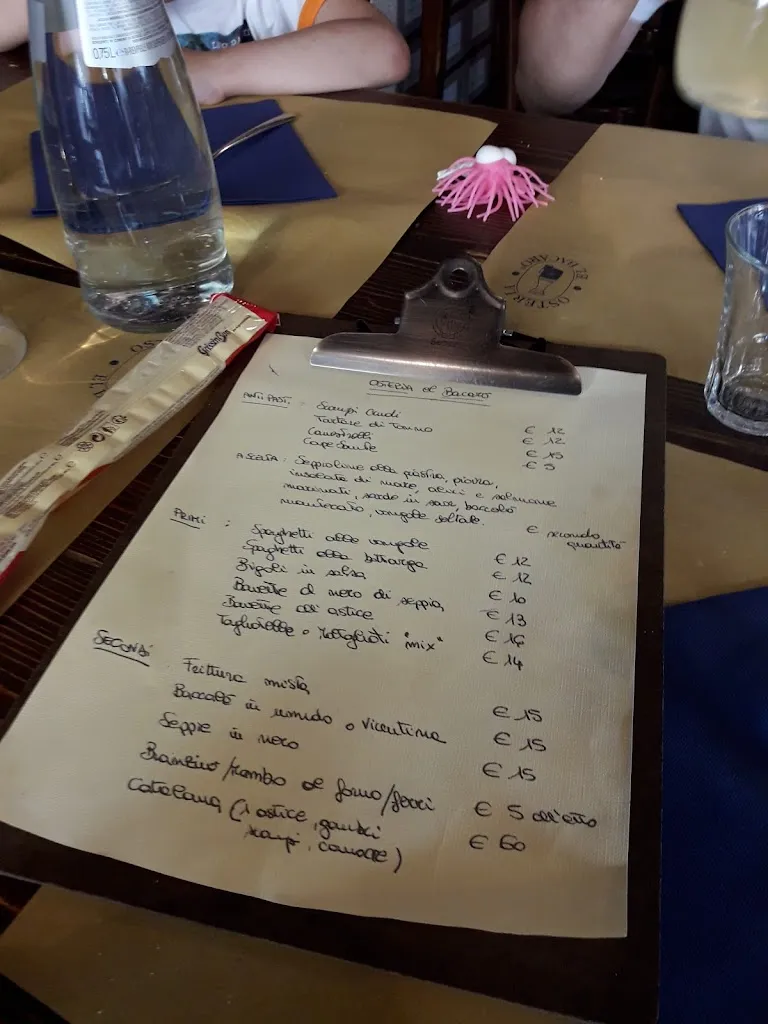 0,75L
OSTERIA
EL BACARO
GrissinBon
OSTERIA al Bacaro
ANTIPASTI:
Scampi Crudi € 12
Tartare di Tonno € 12
Canestrelli € 15
Cape Sante € 5
A SCELTA: Seppioline alla piastra, piovra,
insalata di mare, alici e salmone
marinati, sarde in saor, baccalà
mantecato, vongole saltate. € secondo
quantità
PRIMI:
Spaghetti alle vongole € 12
Spaghetti alla bottarga € 12
Bigoli in salsa € 10
Bavette al nero di seppia € 13
Bavette all'astice € 16
Tagliatelle o Maltagliati "mix" € 14
SECONDI
Frittura mista € 15
Baccalà in umido o Vicentina € 15
Seppie in nero € 15
Branzino/rombo al forno/ferri € 5 all'etto
Catalana (1 astice, gamberi € 60
scampi, canocce)